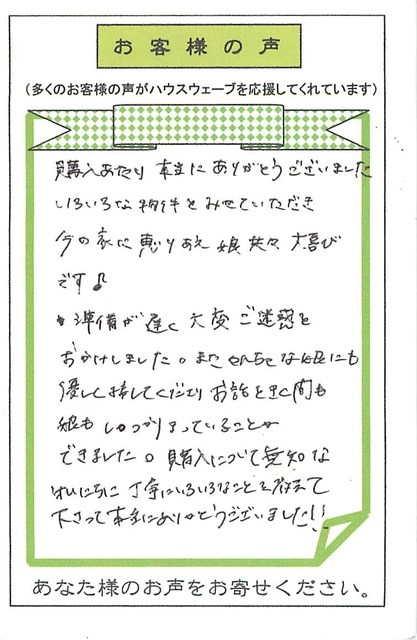 お客様の声
(多くのお客様の声がハウスウェーブを応援してくれています)
購入あたり 本当に ありがとうございました
いろいろな物件を みせていただき
今の家に 恵りあえ 娘共々 大喜び
です♪
準備が遅く 大変 ご迷惑を
おかけしました。また やんちゃな娘にも
優しく接してくださり お話をきく間も
娘も しっかりまっていることが
できました。購入について無知な
わたしたちに 丁寧にいろいろなことを教えて
下さって本当にありがとうございました!!
あなた様のお声をお寄せください。